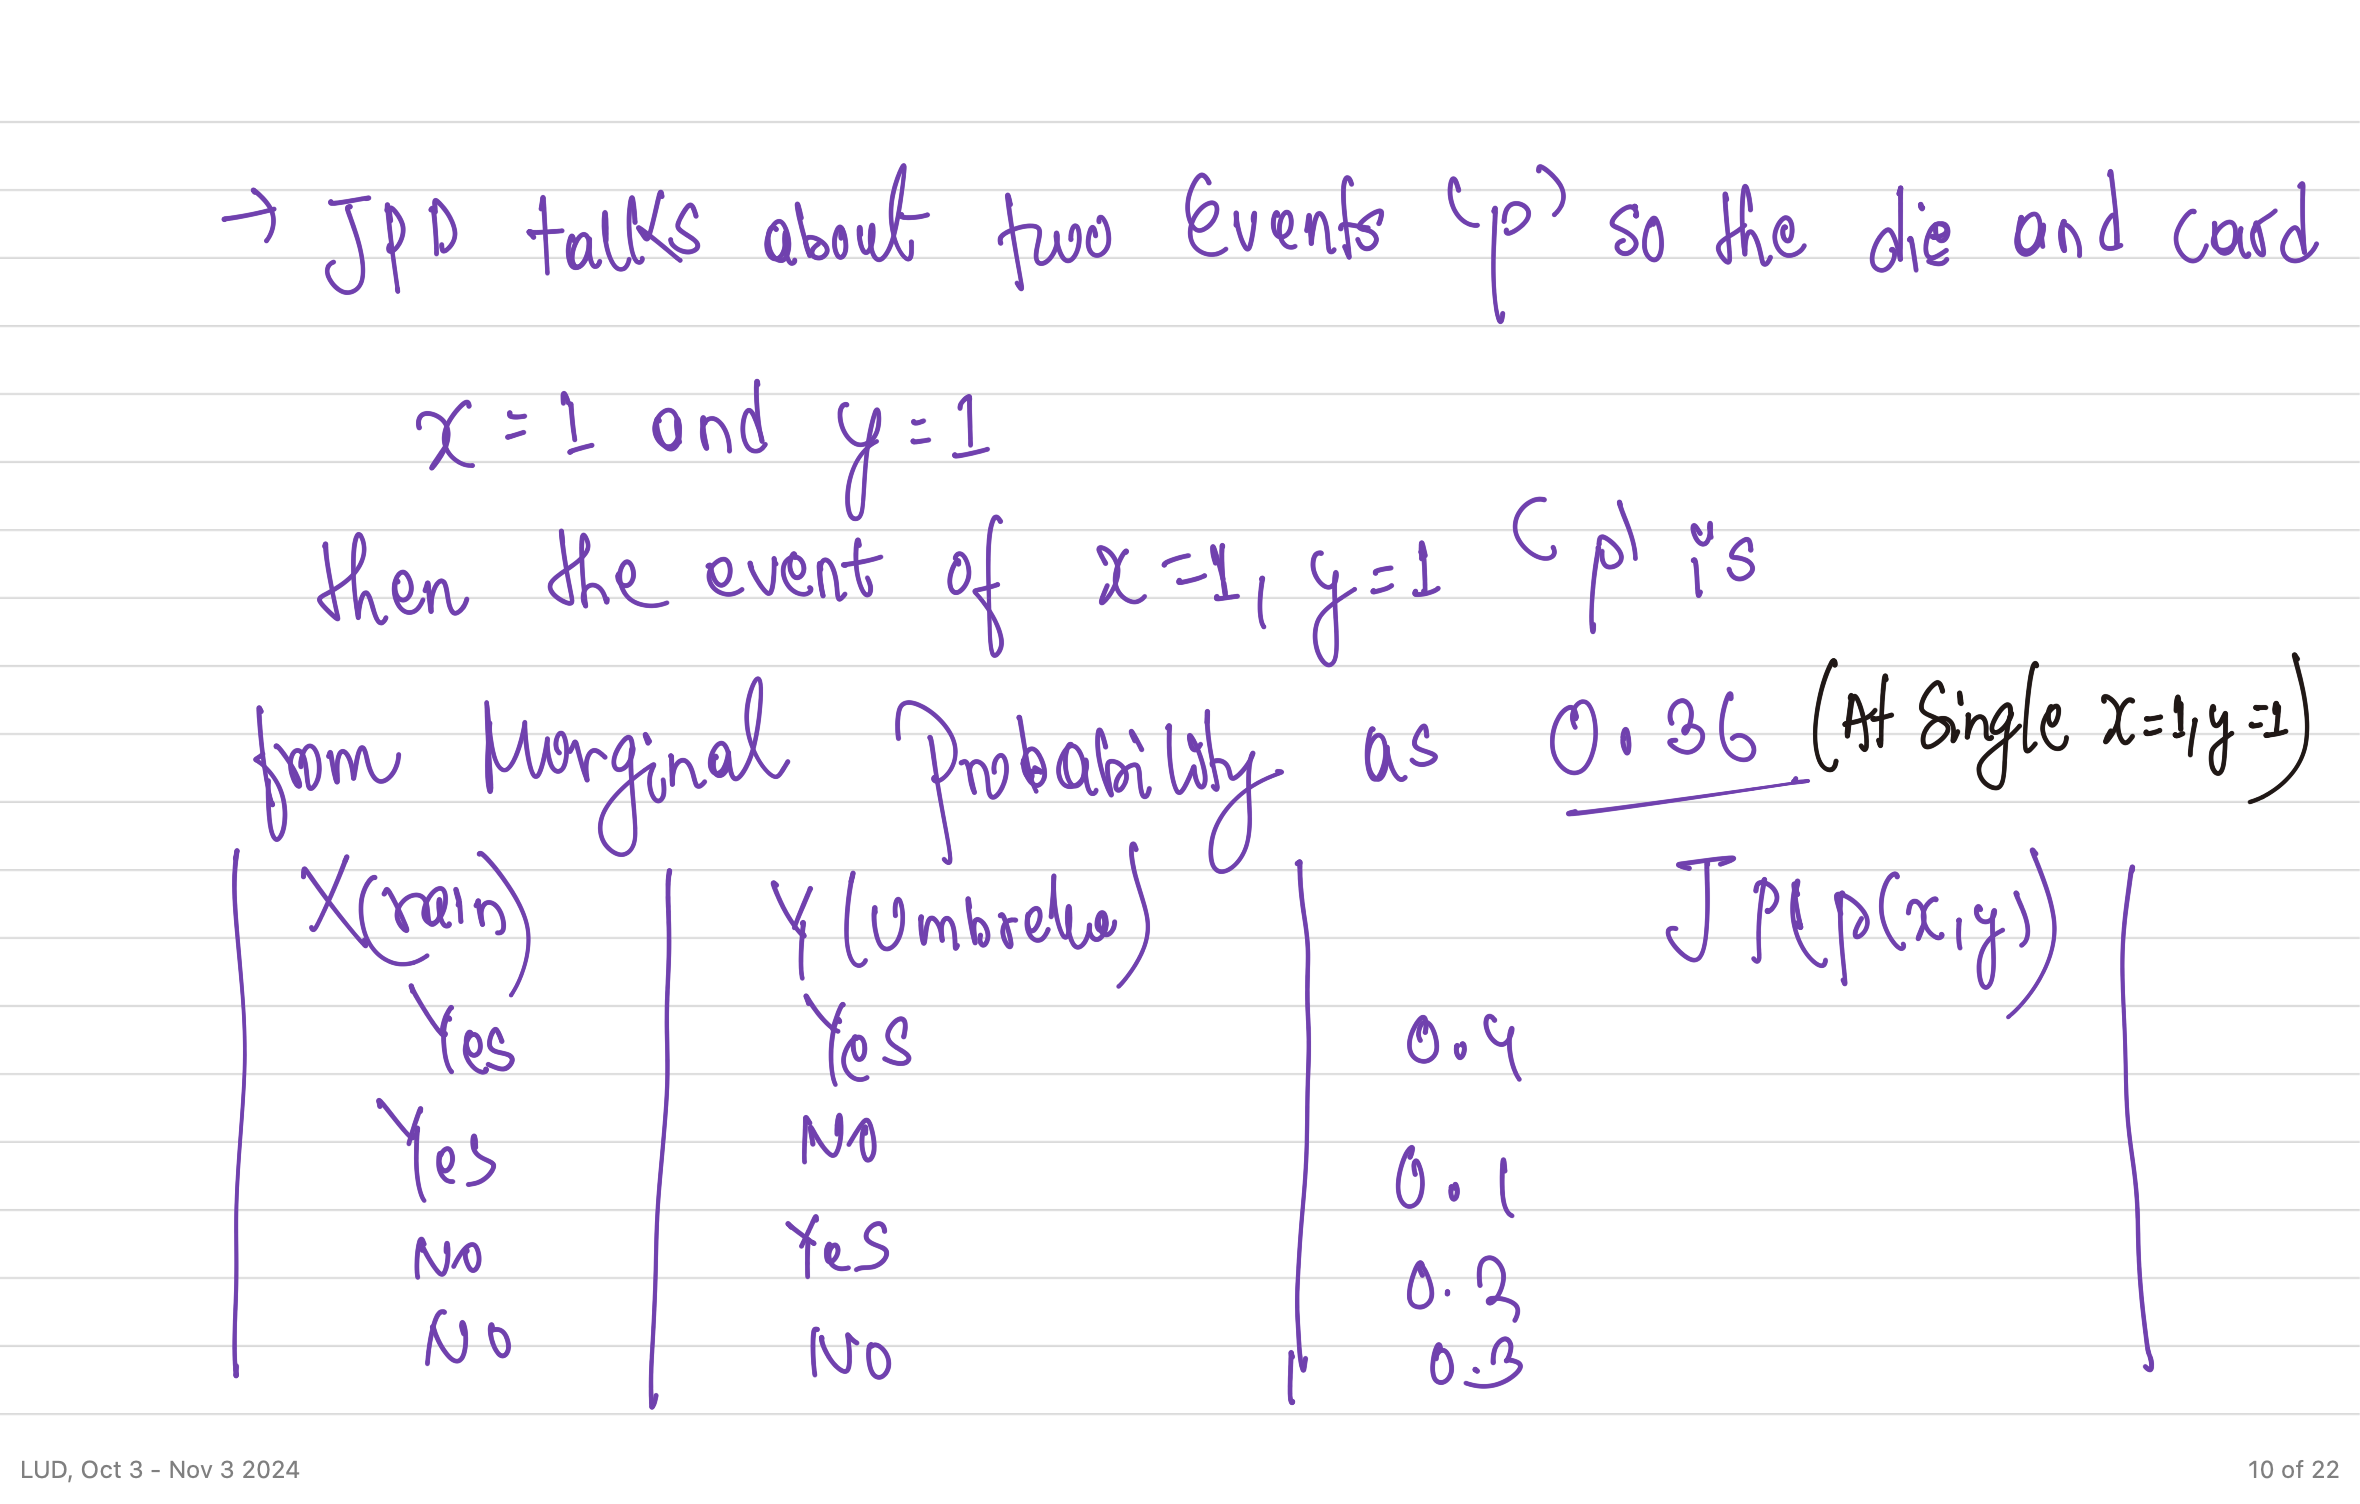 → JPD talks about two Events (p) so the die and card
x = 1 and y = 1
then the event of x = 1, y = 1 (p) is
from Marginal Probability as 0.36 (At Single x=1, y=1)
X(rain) Y(Umbrella) JP(p(x,y)
Yes Yes 0.4
Yes No 0.1
No Yes 0.2
No No 0.3
LUD, Oct 3 - Nov 3 2024 10 of 22